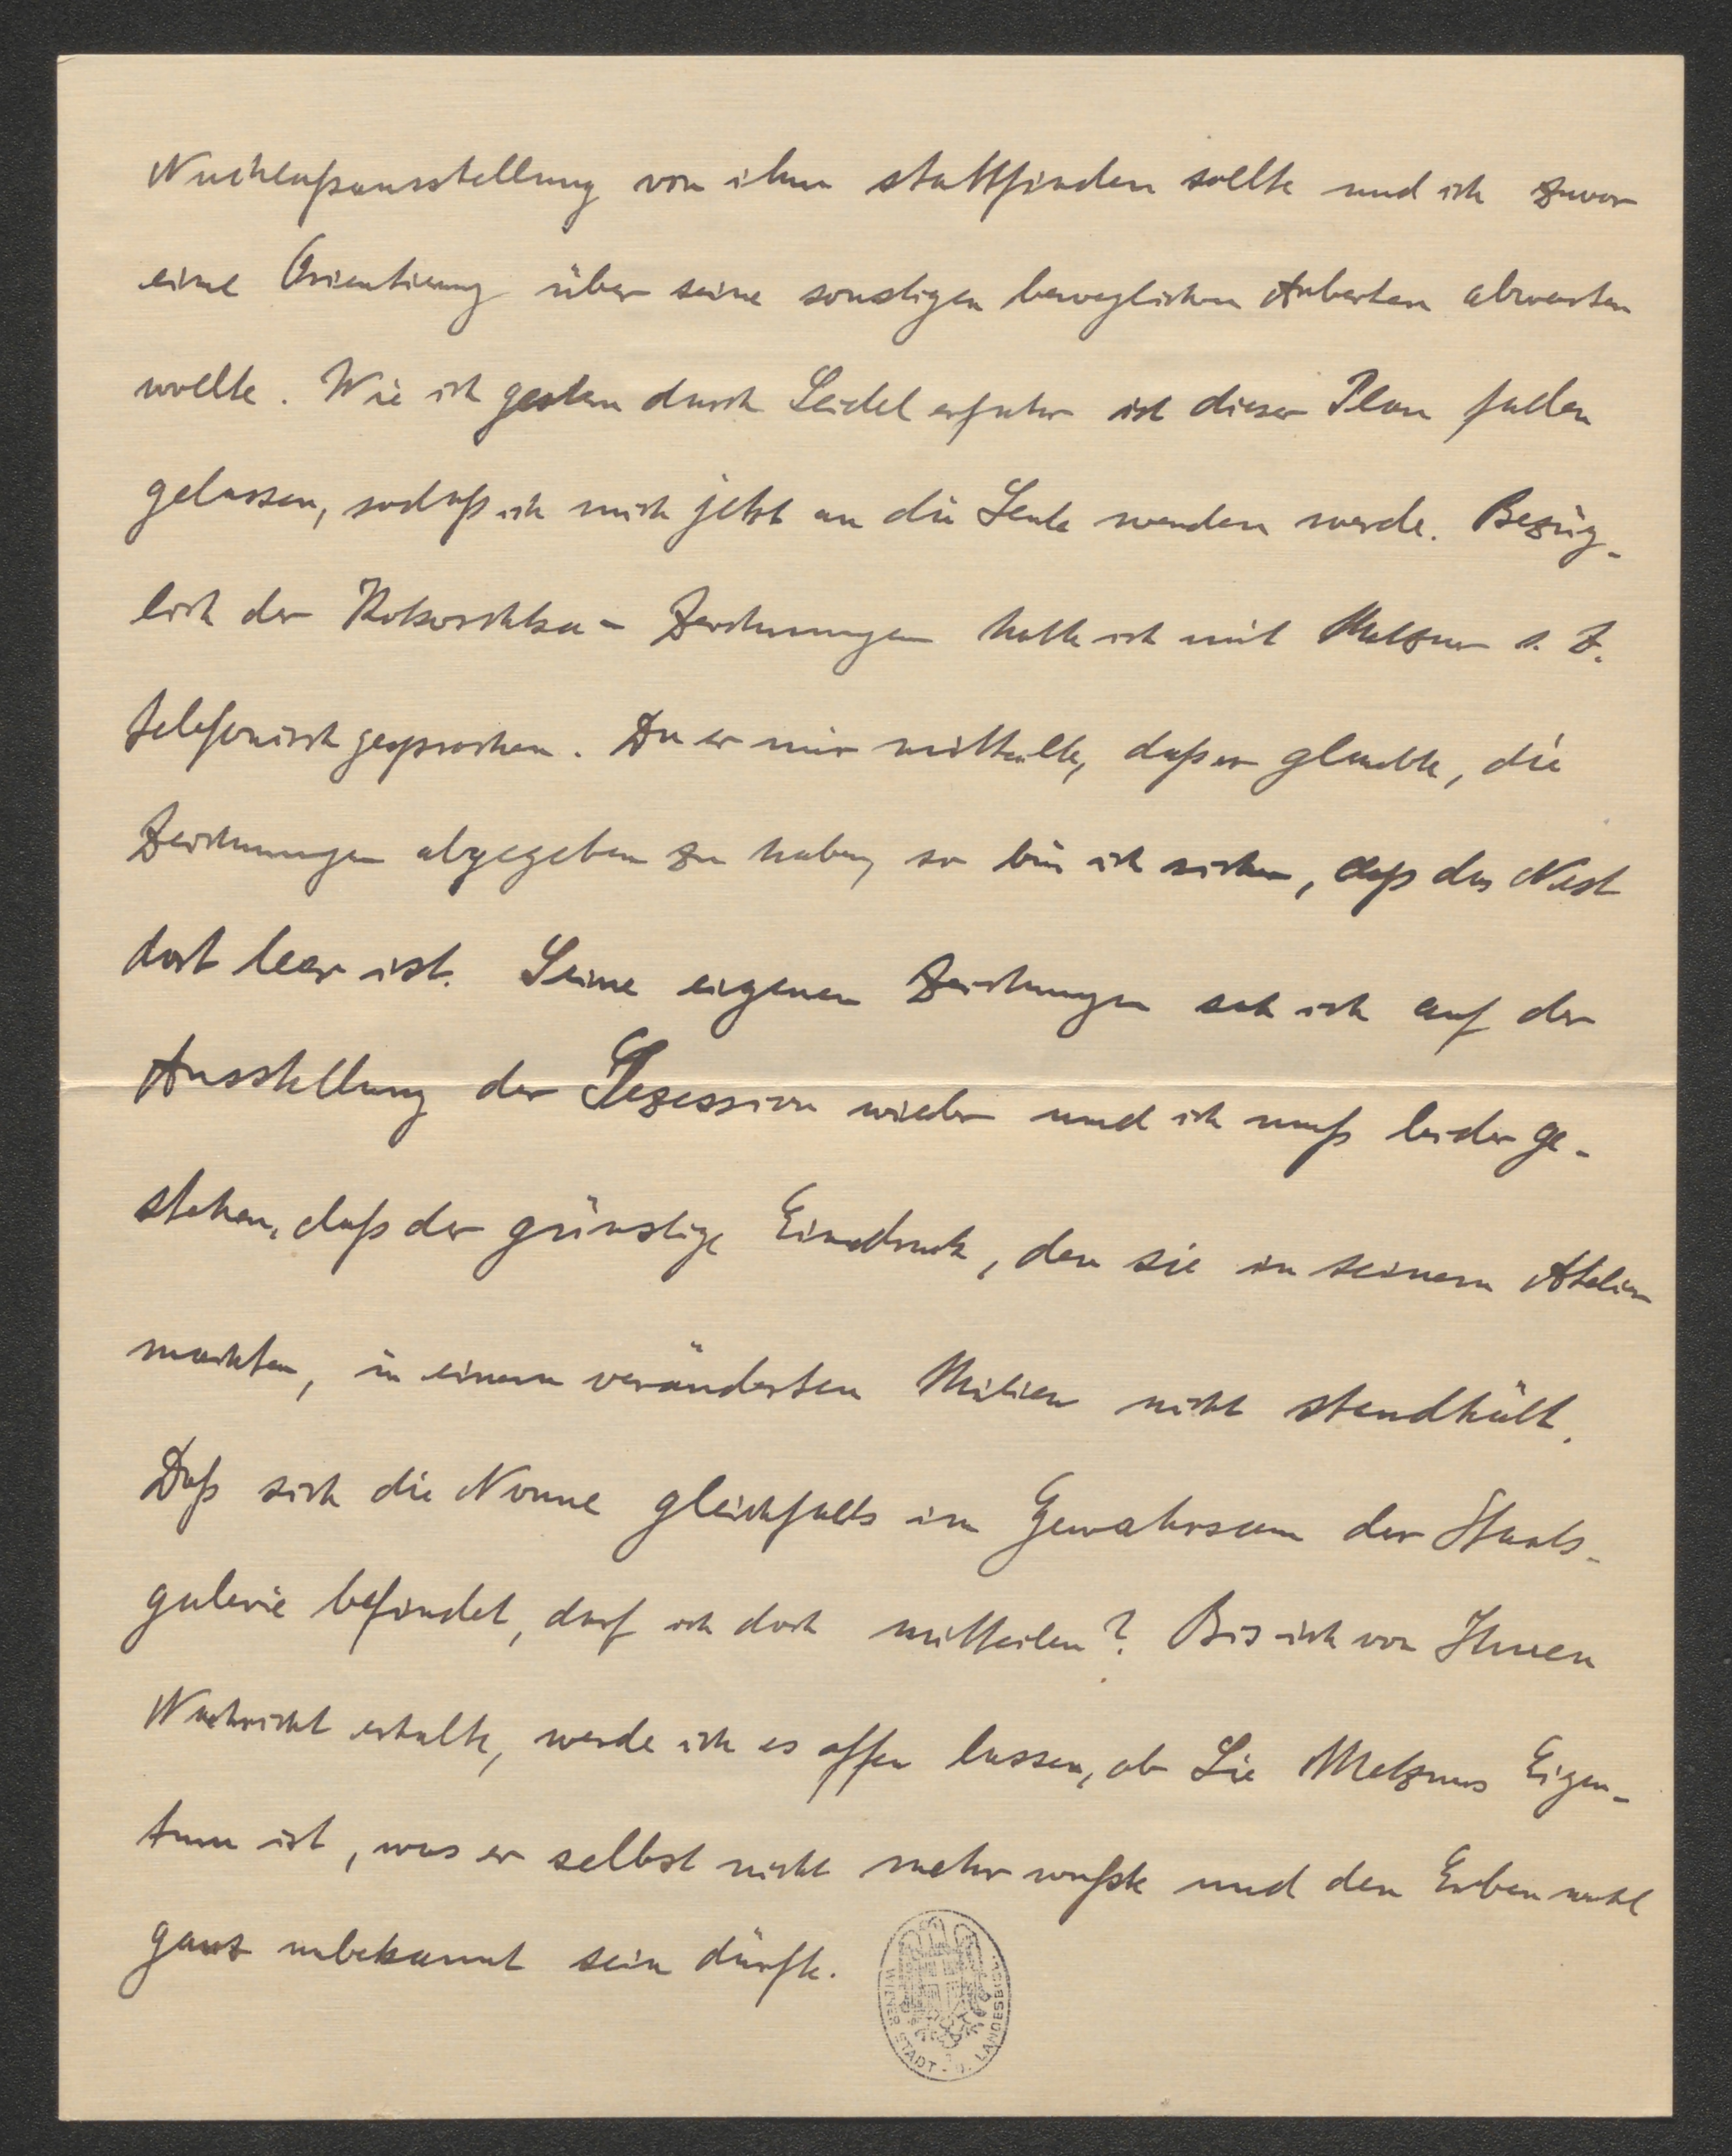 Nachlaßausstellung von ihm stattfinden sollte und ich zuvor
eine Orientierung über seine sonstigen beweglichen Arbeiten abwarten
wollte. Wie ich gestern durch Seidel erfuhr ist dieser Plan fallen
gelassen, sodaß ich mich jetzt an die Leute wenden werde. Bezüg-
lich der Kokoschka-Zeichnungen hatte ich mit Metzner s. Z.
telefonisch gesprochen. Da er mir mitteilte, daß er glaubte, die
Zeichnungen abgegeben zu haben, so bin ich sicher, daß das Nest
dort leer ist. Seine eigenen Zeichnungen sah ich auf der
Ausstellung der Sezession wieder und ich muß leider ge-
stehen, daß der günstige Eindruck, den sie in seinem Atelier
machten, in einem veränderten Milieu nicht standhält.
Daß sich die Nonne gleichfalls im Gewahrsam der Staats-
galerie befindet, darf ich doch mitteilen? Bis ich von Ihnen
Nachricht erhalte, werde ich es offen lassen, ob Sie Metzners Eigen-
tum ist, was er selbst nicht mehr wußte und den Erben wohl
ganz unbekannt sein dürfte.
WIENER STADT- U. LANDESBIBL.